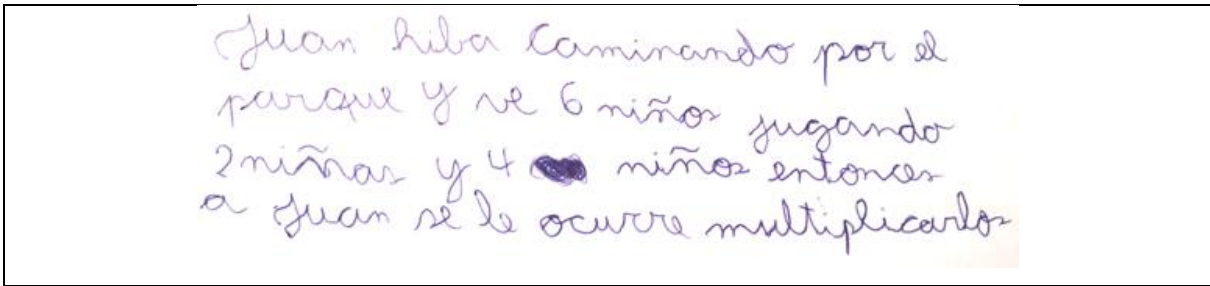 Juan hiba Caminando por el
parque y ve 6 niños jugando
2 niñas y 4 niños entonces
a Juan se le ocurre multiplicarlos